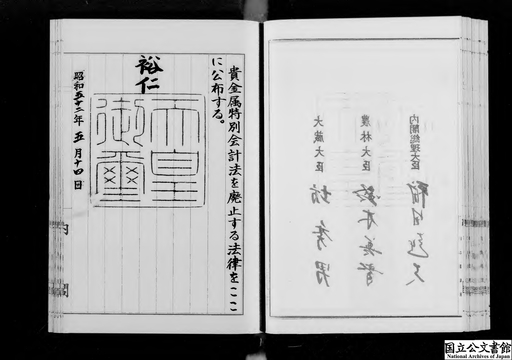 内閣総理大臣
福田赳夫
農林大臣
鈴木善幸
大蔵大臣
坊秀男
貴金属特別会計法を廃止する法律をここ
に公布する。
裕仁
天皇
御璽
昭和五十二年 五月十四日
内閣
国立公文書館
National Archives of Japan